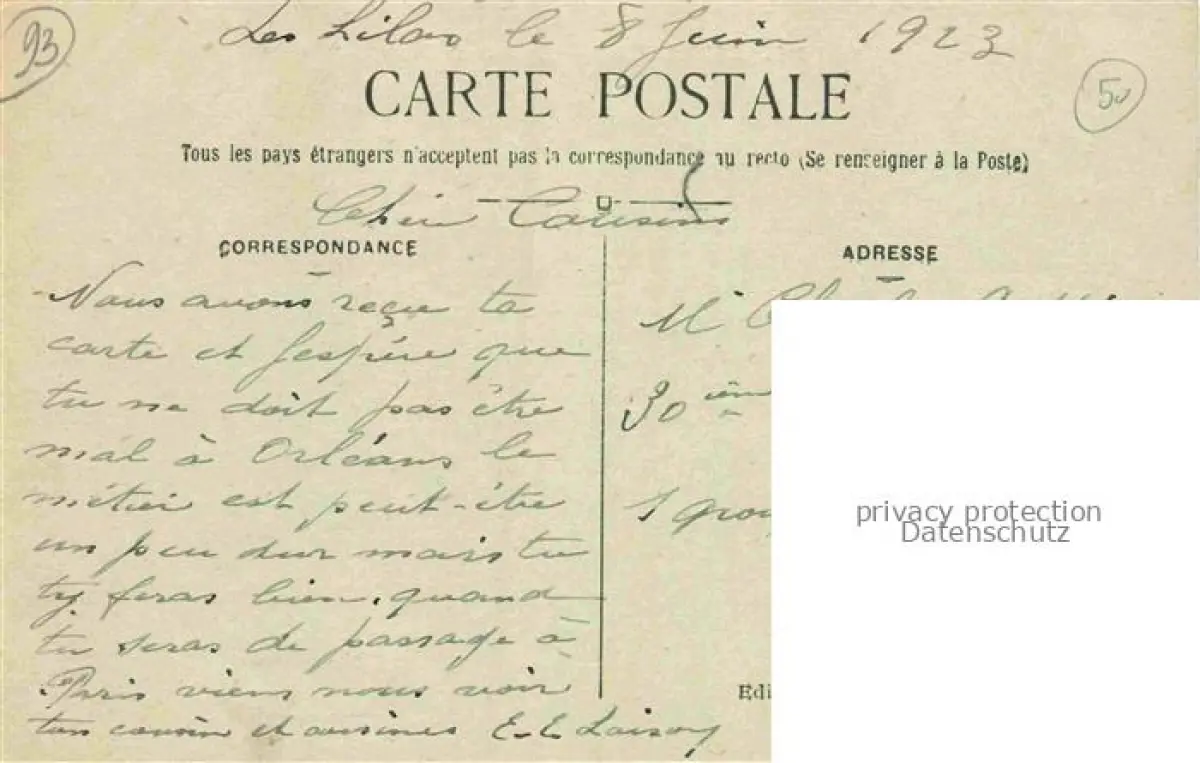 93
Les Lilas le 8 Juin 1923
CARTE POSTALE
50
Tous les pays étrangers n'acceptent pas la correspondance au recto (Se renseigner à la Poste)
Cher Cousin
CORRESPONDANCE
ADRESSE
Nous avons reçu ta
carte et j'espère que
tu ne doit pas être
mal à Orléans le
métier est peut-être
un peu dur mais tu
ty feras bien. quand
tu seras de passage à
Paris viens nous voir
ton cousin et cousines E. L.
Mr
30 ième
1 grou
Edi
privacy protection
Datenschutz